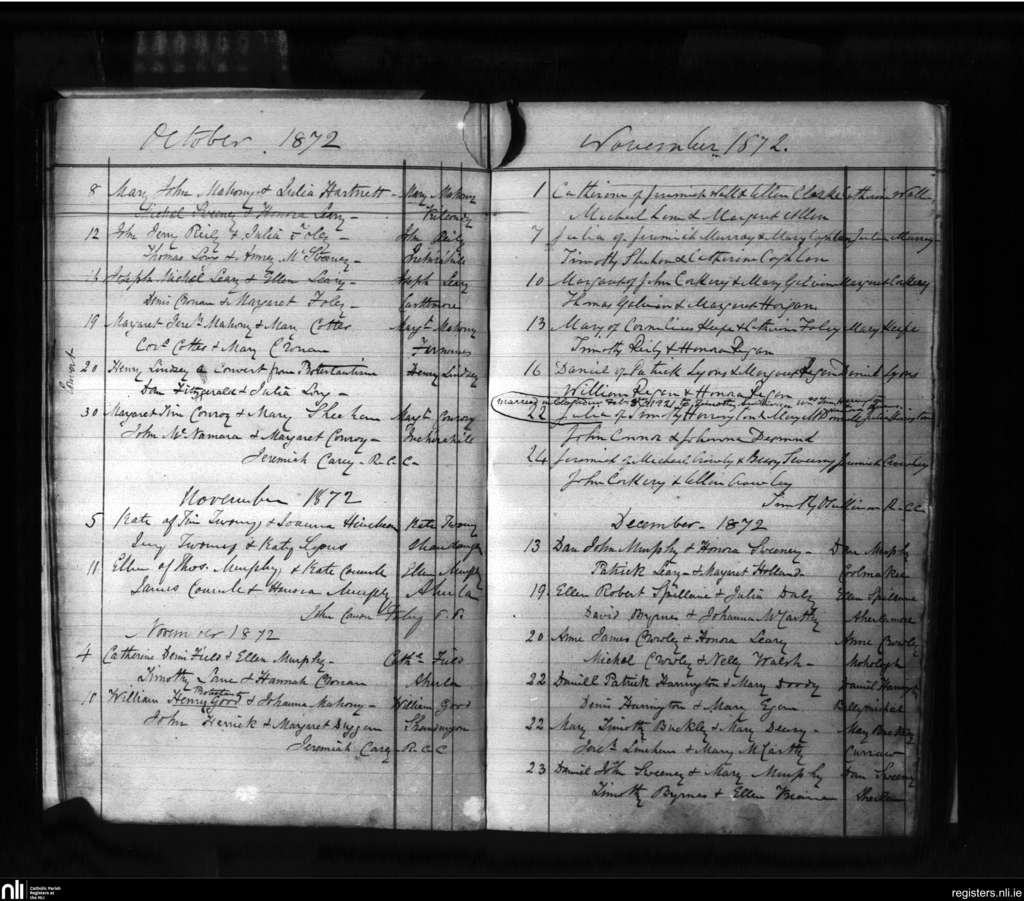 October 1872
8 Mary John Mahony & Julia Hartnett - Mary Mahony
Michel Sweeney & Honora Leary -
12 John Jerry Reily & Julia Foley - John Reily
Thomas Long & -
15 Joseph Michel Leary & Ellen Leary - Joseph Leary
Denis Cronan & Margaret Foley -
19 Margaret Jereh Mahony & Mary Cotter Margt Mahony
Cors Cotter & Mary Cronan
Convert
20 Henry Lindsey a Convert from Protestantism Henry Lindsey
Dan Fitzgerald & Julia Long -
30 Margaret Tim Conroy & Mary Sheehan Margt Conroy
John McNamara & Margaret Conroy -
Jeremiah Carey - R.C.C -
November 1872
5 Kate of Tim Twomey & Joanna Kate Twomey
Jerry Twomey & Katy Lyons
11 Ellen of Thos. Murphy & Kate Ellen Murphy
James & Honora Murphy Aherla
John Canon Foley P.P.
November 1872
4 Catherine Denis Field & Ellen Murphy - Cathe Field
Timothy Lane & Hannah Cronan Aherla
10 William Henry Good Protestant & Johanna Mahony - William Good
John Herrick & Margaret Duggan
Jeremiah Carey - R.C.C
November 1872.
1 Catherine of Jeremiah Wall & Ellen Clarke Catherine Wall
Micheal & Margaret Allen
7 Julia of Jeremiah Murray & Mary Julia Murray
Timothy & Catherine
10 Margaret of John Corkery & Mary Galvin Margaret Corkery
Thomas Galvin & Margaret Horgan
13 Mary of Cornelius Keefe & Catherine Foley Mary Keefe
Timothy Reily & Honora Regan
16 Daniel of Patrick Lyons & Margaret Regan Daniel Lyons
William Regan & Honora Regan
married
22 Julia of Timothy Harrington & Mary Julia Harrington
John Connor & Johanna Desmond
24 Jeremiah of Micheal Crowly & Bessy Sweeny Jeremiah Crowley
John Corkery & Ellen Crowley
Timothy O'Sullivan R.C.C.
December - 1872
13 Dan John Murphy & Honora Sweeney - Dan Murphy
Patrick Leary & Margaret Holland -
19. Ellen Robert Spillane & Julia Daly Ellen Spillane
David Byrnes & Johanna McCarthy
20 Anne James Crowly & Honora Leary Anne Crowly
Michel Crowly & Nelly Walsh -
22 Daniell Patrick Harrington & Mary Doody Daniel Harrington
Denis Harrington & Mary Egan
22 Mary Timothy Buckley & Mary Deasy - Mary Buckley
Jereh Linehan & Mary McCarthy Currow
23 Daniel John Sweeney & Mary Murphy Dan Sweeny
Timothy Byrnes & Ellen
nli Catholic Parish
Registers at
the NLI
registers.nli.ie